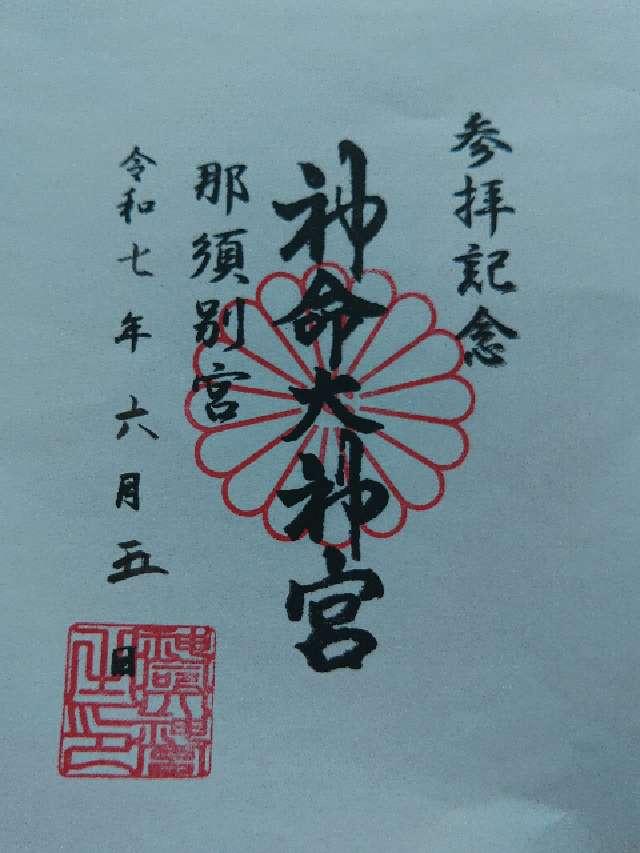 参拝記念
神命大神宮
那須別宮
令和七年六月五日